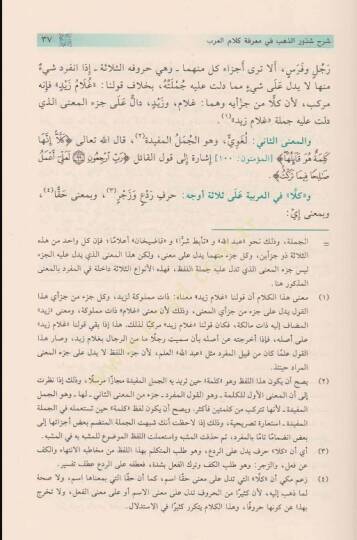 شرح شذور الذهب في معرفة كلام العرب
٣٧
رَجُلٍ وفَرَسٍ، ألا ترى أجزاء كل منهما ـ وهي حروفه الثلاثة ـ إذا انفرد شيءٌ
منها لا يدل عَلَى شيءٍ مما دلت عليه جُملَتُهُ، بخلاف قولنا: «غُلَامُ زَيْدٍ» فإنه
مركب، لأن كلًّا من جزأيه وهما: غلام، وزَيْدٍ، دالٌّ عَلَى جزء المعنى الذي
دلت عليه جملة «غلام زيد»(١).
والمعنى الثاني: لُغَويٌّ، وهو الجُمَلُ المفيدة(٢)، قال الله تعالى ﴿كَلَّا إِنَّهَا
كَلِمَةٌ هُوَ قَائِلُهَا﴾ [المؤمنون: ١٠٠] إشارة إلى قول القائل ﴿رَبِّ ارْجِعُونِ ۝ لَعَلِّي أَعْمَلُ
صَالِحًا فِيمَا تَرَكْتُ﴾.
و«كلَّا» في العربية عَلَى ثلاثة أوجه: حرفِ رَدْعٍ وَزَجْرٍ(٣)، وبمعنى حَقًّا(٤)،
وبمعنى إيْ:
= الجملة، وذلك نحو «عبد الله» و«تأبط شرًّا» و«قاضيخان» أعلامًا؛ فإن كل واحد من هذه
الثلاثة ذو جزأين، وكل جزء منهما يدل على معنى، ولكن هذا المعنى الذي يدل عليه الجزء
ليس جزء المعنى الذي تدل عليه جملة اللفظ، فهذه الأنواع الثلاثة داخلة في المفرد بالمعنى
المذكور هنا.
(١) معنى هذا الكلام أن قولنا «غلام زيد» معناه: ذات مملوكة لزيد، وكل جزء من جزأي هذا
القول يدل على جزء من جزأي المعنى، وذلك لأن معنى «غلام» ذات مملوكة، ومعنى «زيد»
المضاف إليه ذات مالكة، فكان قولنا «غلام زيد» مركبًا لذلك. هذا إذا بقي قولنا «غلام زيد»
على أصله، فإذا أخرجته عن أصله بأن سميت رجلًا ما من الرجال بغلام زيد، وصار هذا
القول علمًا كان من قبيل المفرد مثل «عبد الله» العلم، لأن جزء اللفظ لا يدل على جزء المعنى
المراد حينئذ.
(٢) يصح أن يكون هذا اللفظ وهو «كلمة» حين تريد به الجمل المفيدة مجازًا مرسلًا، وذلك إذا نظرت
إلى أن المعنى الأول للكلمة ـ وهو القول المفرد ـ جزء من المعنى الثاني ـ لها ـ وهو الجمل
المفيدة ـ لأنها تتركب من كلمتين فأكثر. ويصح أن يكون لفظ «كلمة» حين تستعمله في الجملة
المفيدة ـ استعارة تصريحية، وذلك إذا لاحظت أنك شبهت الجملة المنضم بعض أجزائها إلى
بعض انضمامًا تامًّا بالمفرد، ثم حذفت المشبه واستعملت اللفظ الموضوع للمشبه به في المشبه.
(٣) أي أن «كلا» حرف يدل على الردع، وهو طلب المتكلم بهذا اللفظ من مخاطبه الانتهاء والكف
عن فعل، والزجر: وهو طلب الكف وترك الفعل بشدة، فعطفه على الردع عطف تفسير.
(٤) زعم مكي أن «كلَّا» التي تدل على معنى حقًّا اسم، كما أن حقًّا التي بمعناها اسم، ولا صحة
لما ذهب إليه، لأن كثيرًا من الحروف تدل على معنى الاسم أو على معنى الفعل، ولا تخرج
بهذا عن كونها حروفًا، وهذا الكلام يتكرر كثيرًا في الاستدلال.